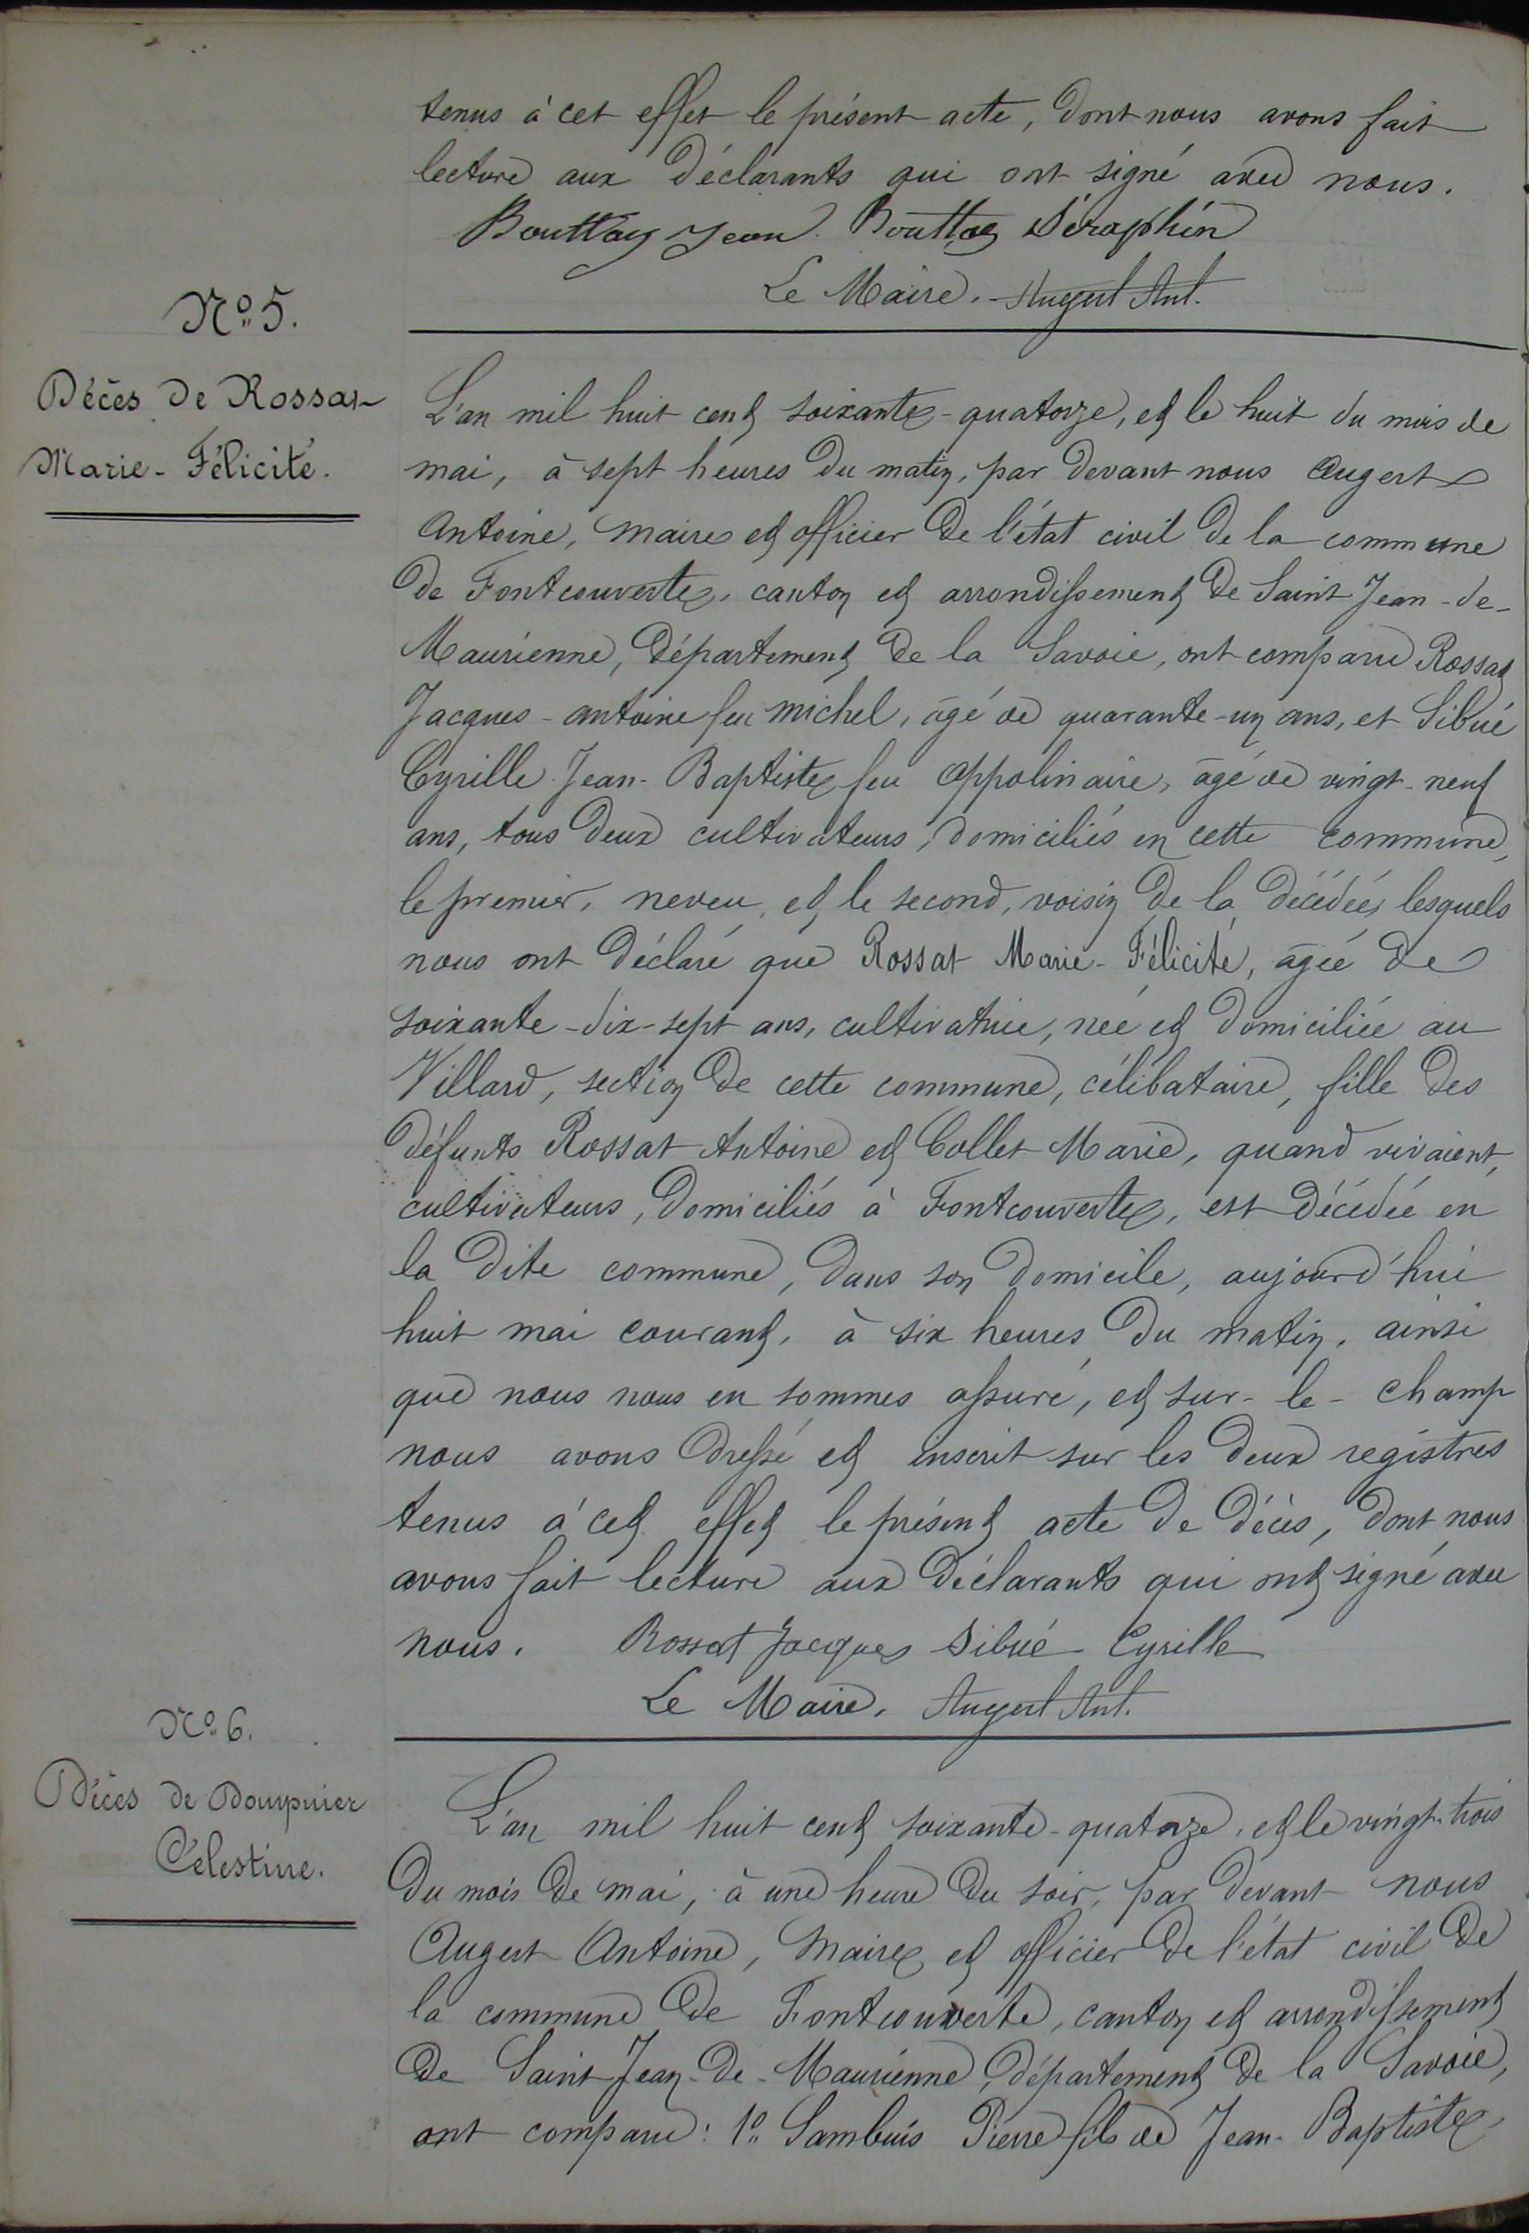 tenus à cet effet le présent acte, dont nous avons fait
lecture aux déclarants qui ont signé avec nous.
Bouttaz Jean. Bouttaz Séraphin
Le Maire. Augert Ant.
N° 5.
Décès de Rossat
Marie-Félicité.
L'an mil huit cent soixante-quatorze, et le huit du mois de
mai, à sept heures du matin, par devant nous Augert
Antoine, maire et officier de l'état civil de la commune
de Fontcouverte, canton et arrondissement de Saint Jean-de-
Maurienne, département de la Savoie, ont comparu Rossat
Jacques-antoine feu michel, âgé de quarante-un ans, et Sibué
Cyrille-Jean-Baptiste feu Appolinaire, âgé de vingt-neuf
ans, tous deux cultivateurs, domiciliés en cette commune,
le premier, neveu, et le second, voisin de la décédée, lesquels
nous ont déclaré que Rossat Marie-Félicité, âgée de
soixante-dix-sept ans, cultivatrice, née et domiciliée au
Villard, section de cette commune, célibataire, fille des
défunts Rossat Antoine et Collet Marie, quand vivaient,
cultivateurs, domiciliés à Fontcouverte, est décédée en
la dite commune, dans son domicile, aujourd'hui
huit mai courant, à six heures du matin, ainsi
que nous nous en sommes assuré, et sur-le-champ
nous avons dressé et inscrit sur les deux registres
tenus à cet effet le présent acte de décès, dont nous
avons fait lecture aux déclarants qui ont signé avec
nous. Rossat Jacques Sibué Cyrille
Le Maire. Augert Ant.
N° 6.
Décès de Dompnier
Célestine.
L'an mil huit cent soixante-quatorze, et le vingt-trois
du mois de mai, à une heure du soir, par devant nous
Augert Antoine, maire et officier de l'état civil de
la commune de Fontcouverte, canton et arrondissement
de Saint Jean-de-Maurienne, département de la Savoie,
ont comparu: 1° Sambuis Pierre fils de Jean-Baptiste,